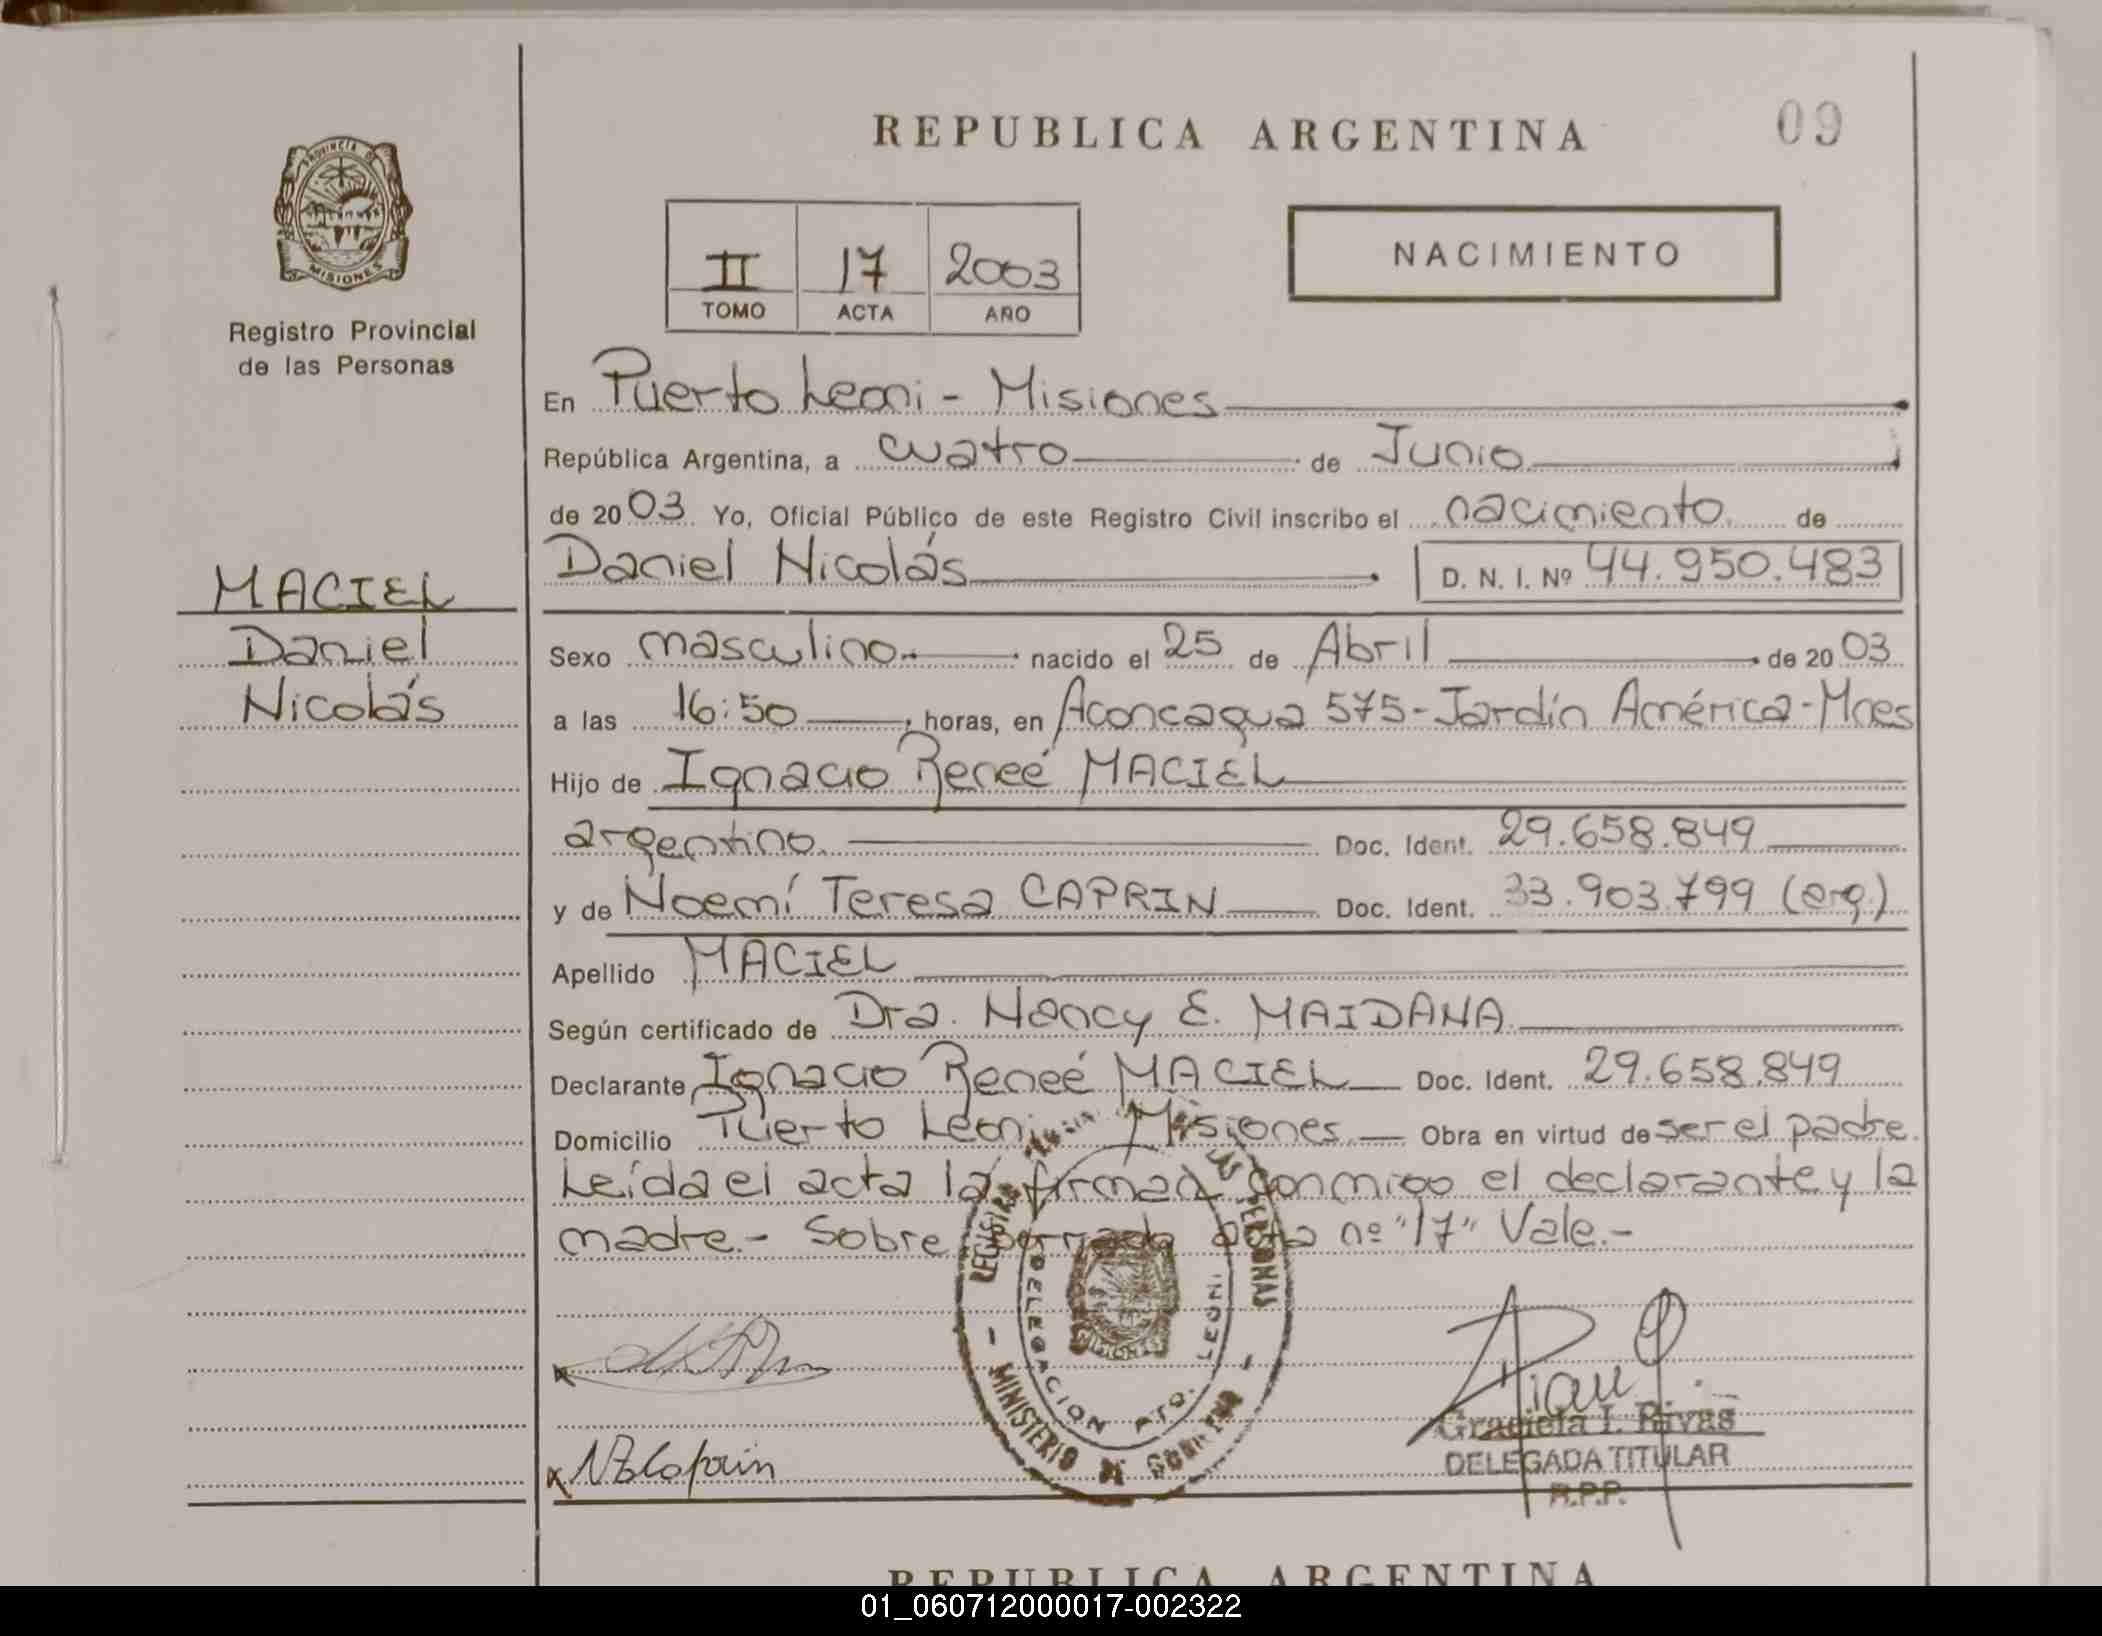 REPUBLICA ARGENTINA
09
PROVINCIA DE
MISIONES
Registro Provincial
de las Personas
II 17 2003
TOMO ACTA AÑO
NACIMIENTO
En Puerto Leoni - Misiones
República Argentina, a cuatro de Junio
de 2003 Yo, Oficial Público de este Registro Civil inscribo el nacimiento de
Daniel Nicolás D. N. I. Nº 44.950.483
MACIEL
Daniel
Nicolás
Sexo masculino nacido el 25 de Abril de 2003
a las 16:50, horas, en Aconcagua 575-Jardín América-Mnes
Hijo de Ignacio Reneé MACIEL
argentino. Doc. Ident. 29.658.849
y de Noemí Teresa CAPRIN Doc. Ident. 33.903.799 (arg.)
Apellido MACIEL
Según certificado de Dra. Nancy E. MAIDANA
Declarante Ignacio Reneé MACIEL Doc. Ident. 29.658.849
Domicilio Puerto Leoni - Misiones Obra en virtud de ser el padre.
Leída el acta la firman conmigo el declarante y la
madre.- Sobre borrado acta nº "17" Vale.-
DELEGACION PTO. LEONI
MISIONES
MINISTERIO DE GOBIERNO
Graciela I. Rivas
DELEGADA TITULAR
R.P.P.
REPUBLICA ARGENTINA
01_060712000017-002322